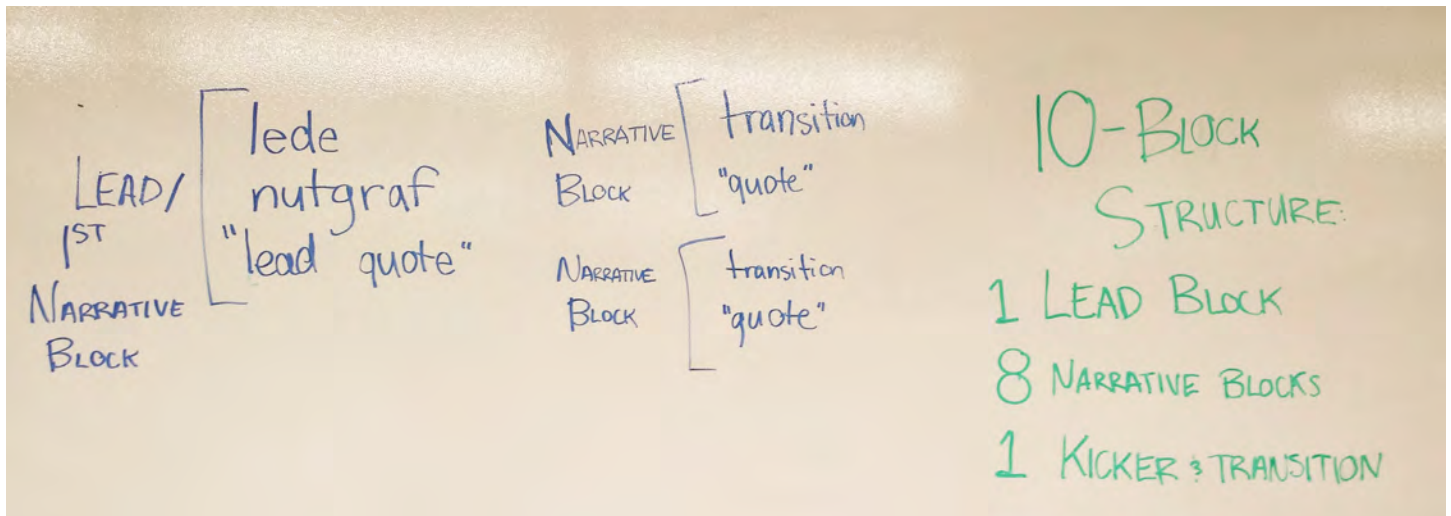 LEAD/
1ST
NARRATIVE
BLOCK
lede
nutgraf
"lead quote"
NARRATIVE
BLOCK
transition
"quote"
NARRATIVE
BLOCK
transition
"quote"
10-BLOCK
STRUCTURE:
1 LEAD BLOCK
8 NARRATIVE BLOCKS
1 KICKER & TRANSITION